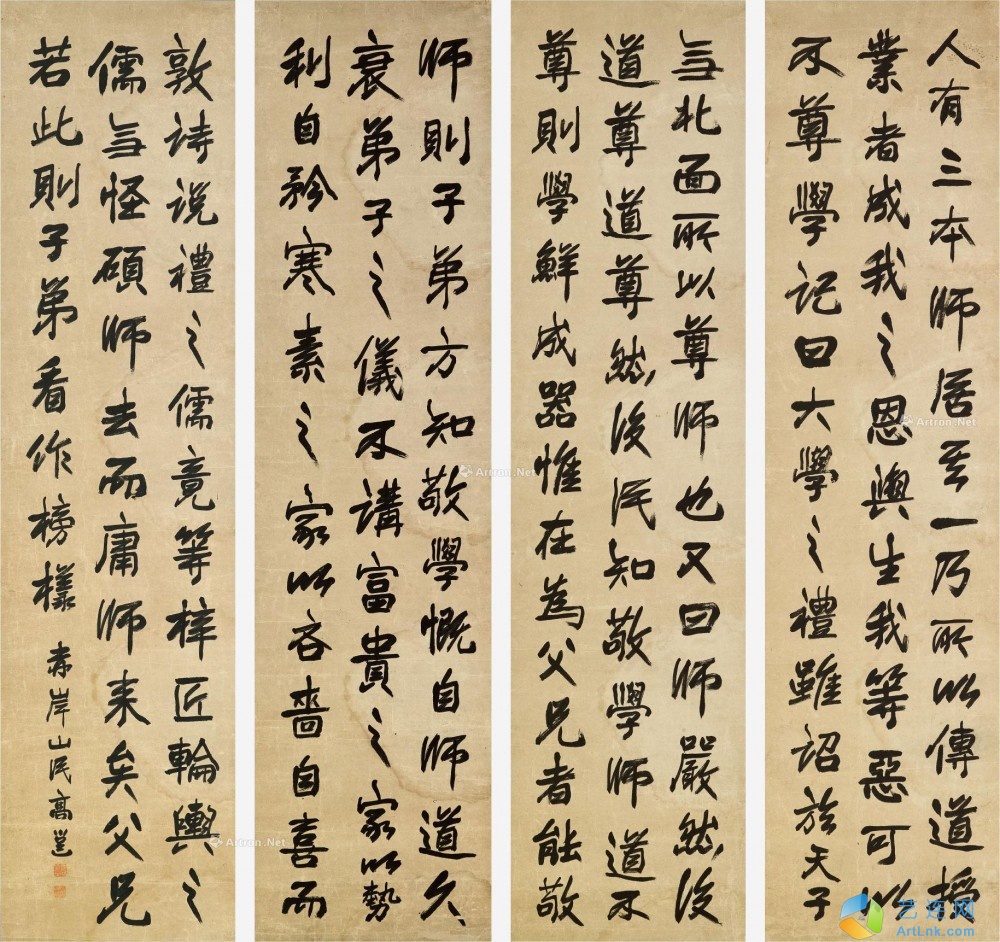 人有三本師居其一乃所以傳道授
業者成我之恩與生我等惡可以
不尊學記曰大學之禮雖詔於天子
無北面所以尊師也又曰師嚴然後
道尊道尊然後民知敬學師道不
尊則學鮮成器惟在為父兄者能敬
師則子弟方知敬學慨自師道久
衰弟子之儀不講富貴之家以勢
利自矜寒素之家以吝嗇自喜而
敦詩説禮之儒竟等梓匠輪輿之
儒無怪碩師去而庸師来矣父兄
若此則子弟看作榜樣 赤岸山民高邕
Artron.Net
Artron.Net
Artron.Net
艺连网
ArtLnk.com